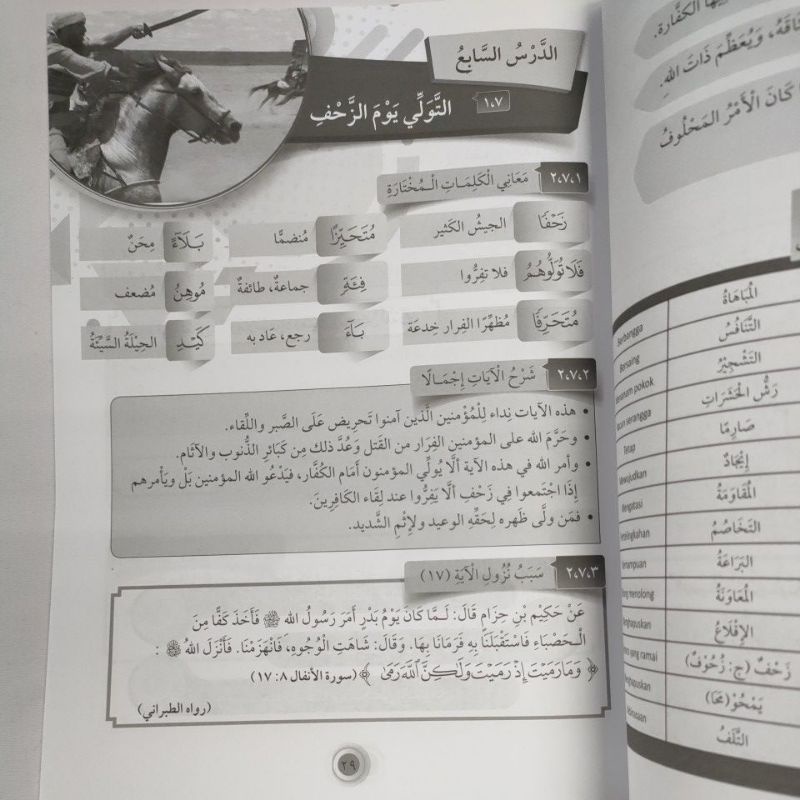 الدَّرْسُ السَّابِعُ
١،٧ التَّوَلِّي يَوْمَ الزَّحْفِ
٢،٧،١ مَعَانِي الْكَلِمَـاتِ الْـمُخْتَارَةِ
زَحْفًا الجيشُ الكَثير مُتَحَيِّزًا مُنضمًّا بَلَآءً مِحَنٌ
فَلَا تُوَلُّوهُمُ فلا تفِرُّوا فِئَةٍ جماعةٌ، طائفةٌ مُوهِنُ مُضعف
مُتَحَرِّفًا مُظهِرًا الفِرار خِدعَة بَآءَ رجع، عَاد به كَيْدِ الحِيْلَةُ السَّيِّئَةُ
٢،٧،٢ شَرْحُ الْآيَاتِ إِجْمَـالًا
• هذه الآيات نِداء لِلْمُؤْمنين الَّذين آمنوا تَحريض عَلَى الصَّبر واللِّقاء.
• وحَرَّمَ الله على المؤمنين الفِرَار من القَتل وَعُدَّ ذلك مِن كَبَائر الذُّنوب والآثَام.
• وأمر الله في هذه الآية ألَّا يُولِّي المؤمنون أمَام الكُفَّار، فيَدْعُو الله المؤمنين بَلْ ويَأمرهم
إِذَا اجْتَمعوا فِي زَحْفٍ ألَّا يَفِرُّوا عند لِقَاء الكَافِرينَ.
• فمَن ولَّى ظَهره لِحَقِّهِ الوعيد والإثم الشَّديد.
٢،٧،٣ سَبَبُ نُزُولِ الْآيَةِ (١٧)
عَنْ حَكِيْمِ بْنِ حِزَامٍ قَالَ: لَـمَّا كَانَ يَوْمُ بَدْرٍ أَمَرَ رَسُولُ الله ﷺ فَأَخَذَ كَفًّا مِنَ
الْـحَصْبَاءِ فَاسْتَقْبَلَنَا بِهِ فَرَمَانَا بِهَا. وَقَالَ: شَاهَتِ الْوُجُوهِ، فَانْهَزَمْنَا. فَأَنْزَلَ اللهُ :
﴿ وَمَا رَمَيْتَ إِذْ رَمَيْتَ وَلَٰكِنَّ ٱللَّهَ رَمَىٰ ﴾ (سورة الأنفال ٨: ١٧)
(رواه الطبراني)
٢٩
الْكَفَّارة.
وَيُعَظِّمَ ذَاتَ اللهِ.
كَانَ الْأَمْرُ الْمَحْلُوفُ
المُبَاهَاةُ
التَّنَافُسُ Bersaing
التَّشْجِيْرُ pokok
رَشُّ الْحَشَرَاتِ serangga
صَارِمًا Tetap
إِيْجَادٌ
المُقَاوَمَةُ Mengatasi
التَّخَاصُمُ
البَرَاعَةُ
المُعَاوَنَةُ menolong
الْإِقْلَاعُ
زَحْفٌ (ج: زُحُوْفٌ) yang ramai
يَمْحُوْ (مَحَا)
التَّلَفُ